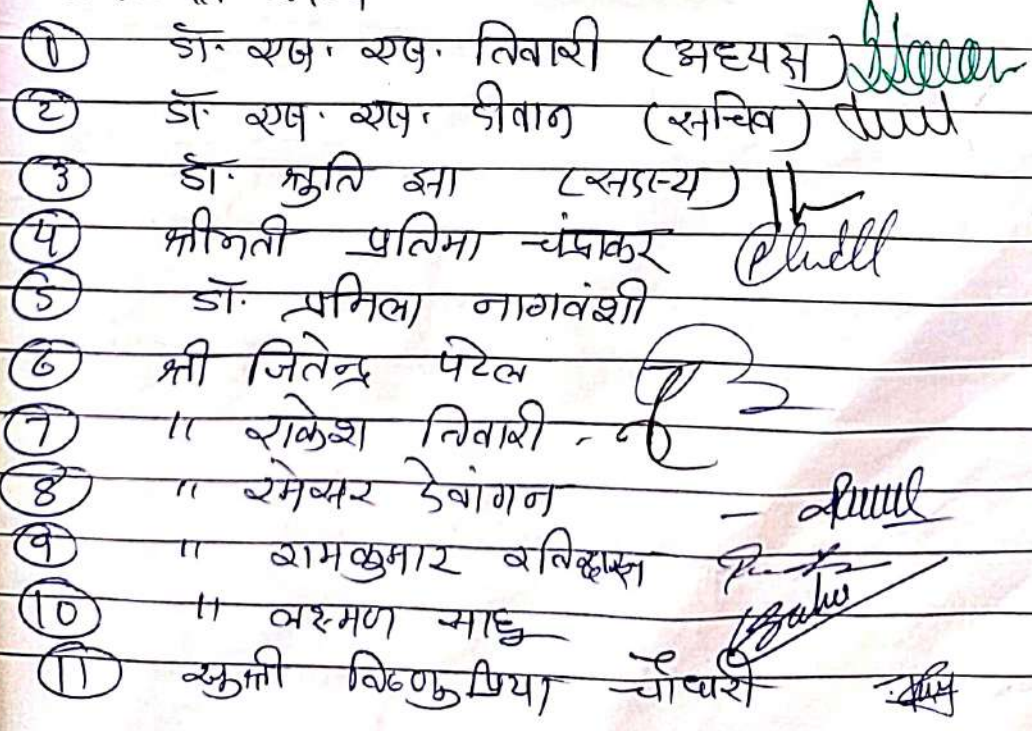 ① डॉ. एस. एस. तिवारी (अध्यक्ष)
② डॉ. एस. एस. दीवान (सचिव)
③ डॉ. श्रुति झा (सदस्य)
④ श्रीमती प्रतिमा चंद्राकर
⑤ डॉ. प्रमिला नागवंशी
⑥ श्री जितेन्द्र पटेल
⑦ " राकेश तिवारी -
⑧ " रमेसर देवांगन -
⑨ " रामकुमार
⑩ " लक्ष्मण साहू
⑪ सुश्री विष्णुप्रिया चौधरी